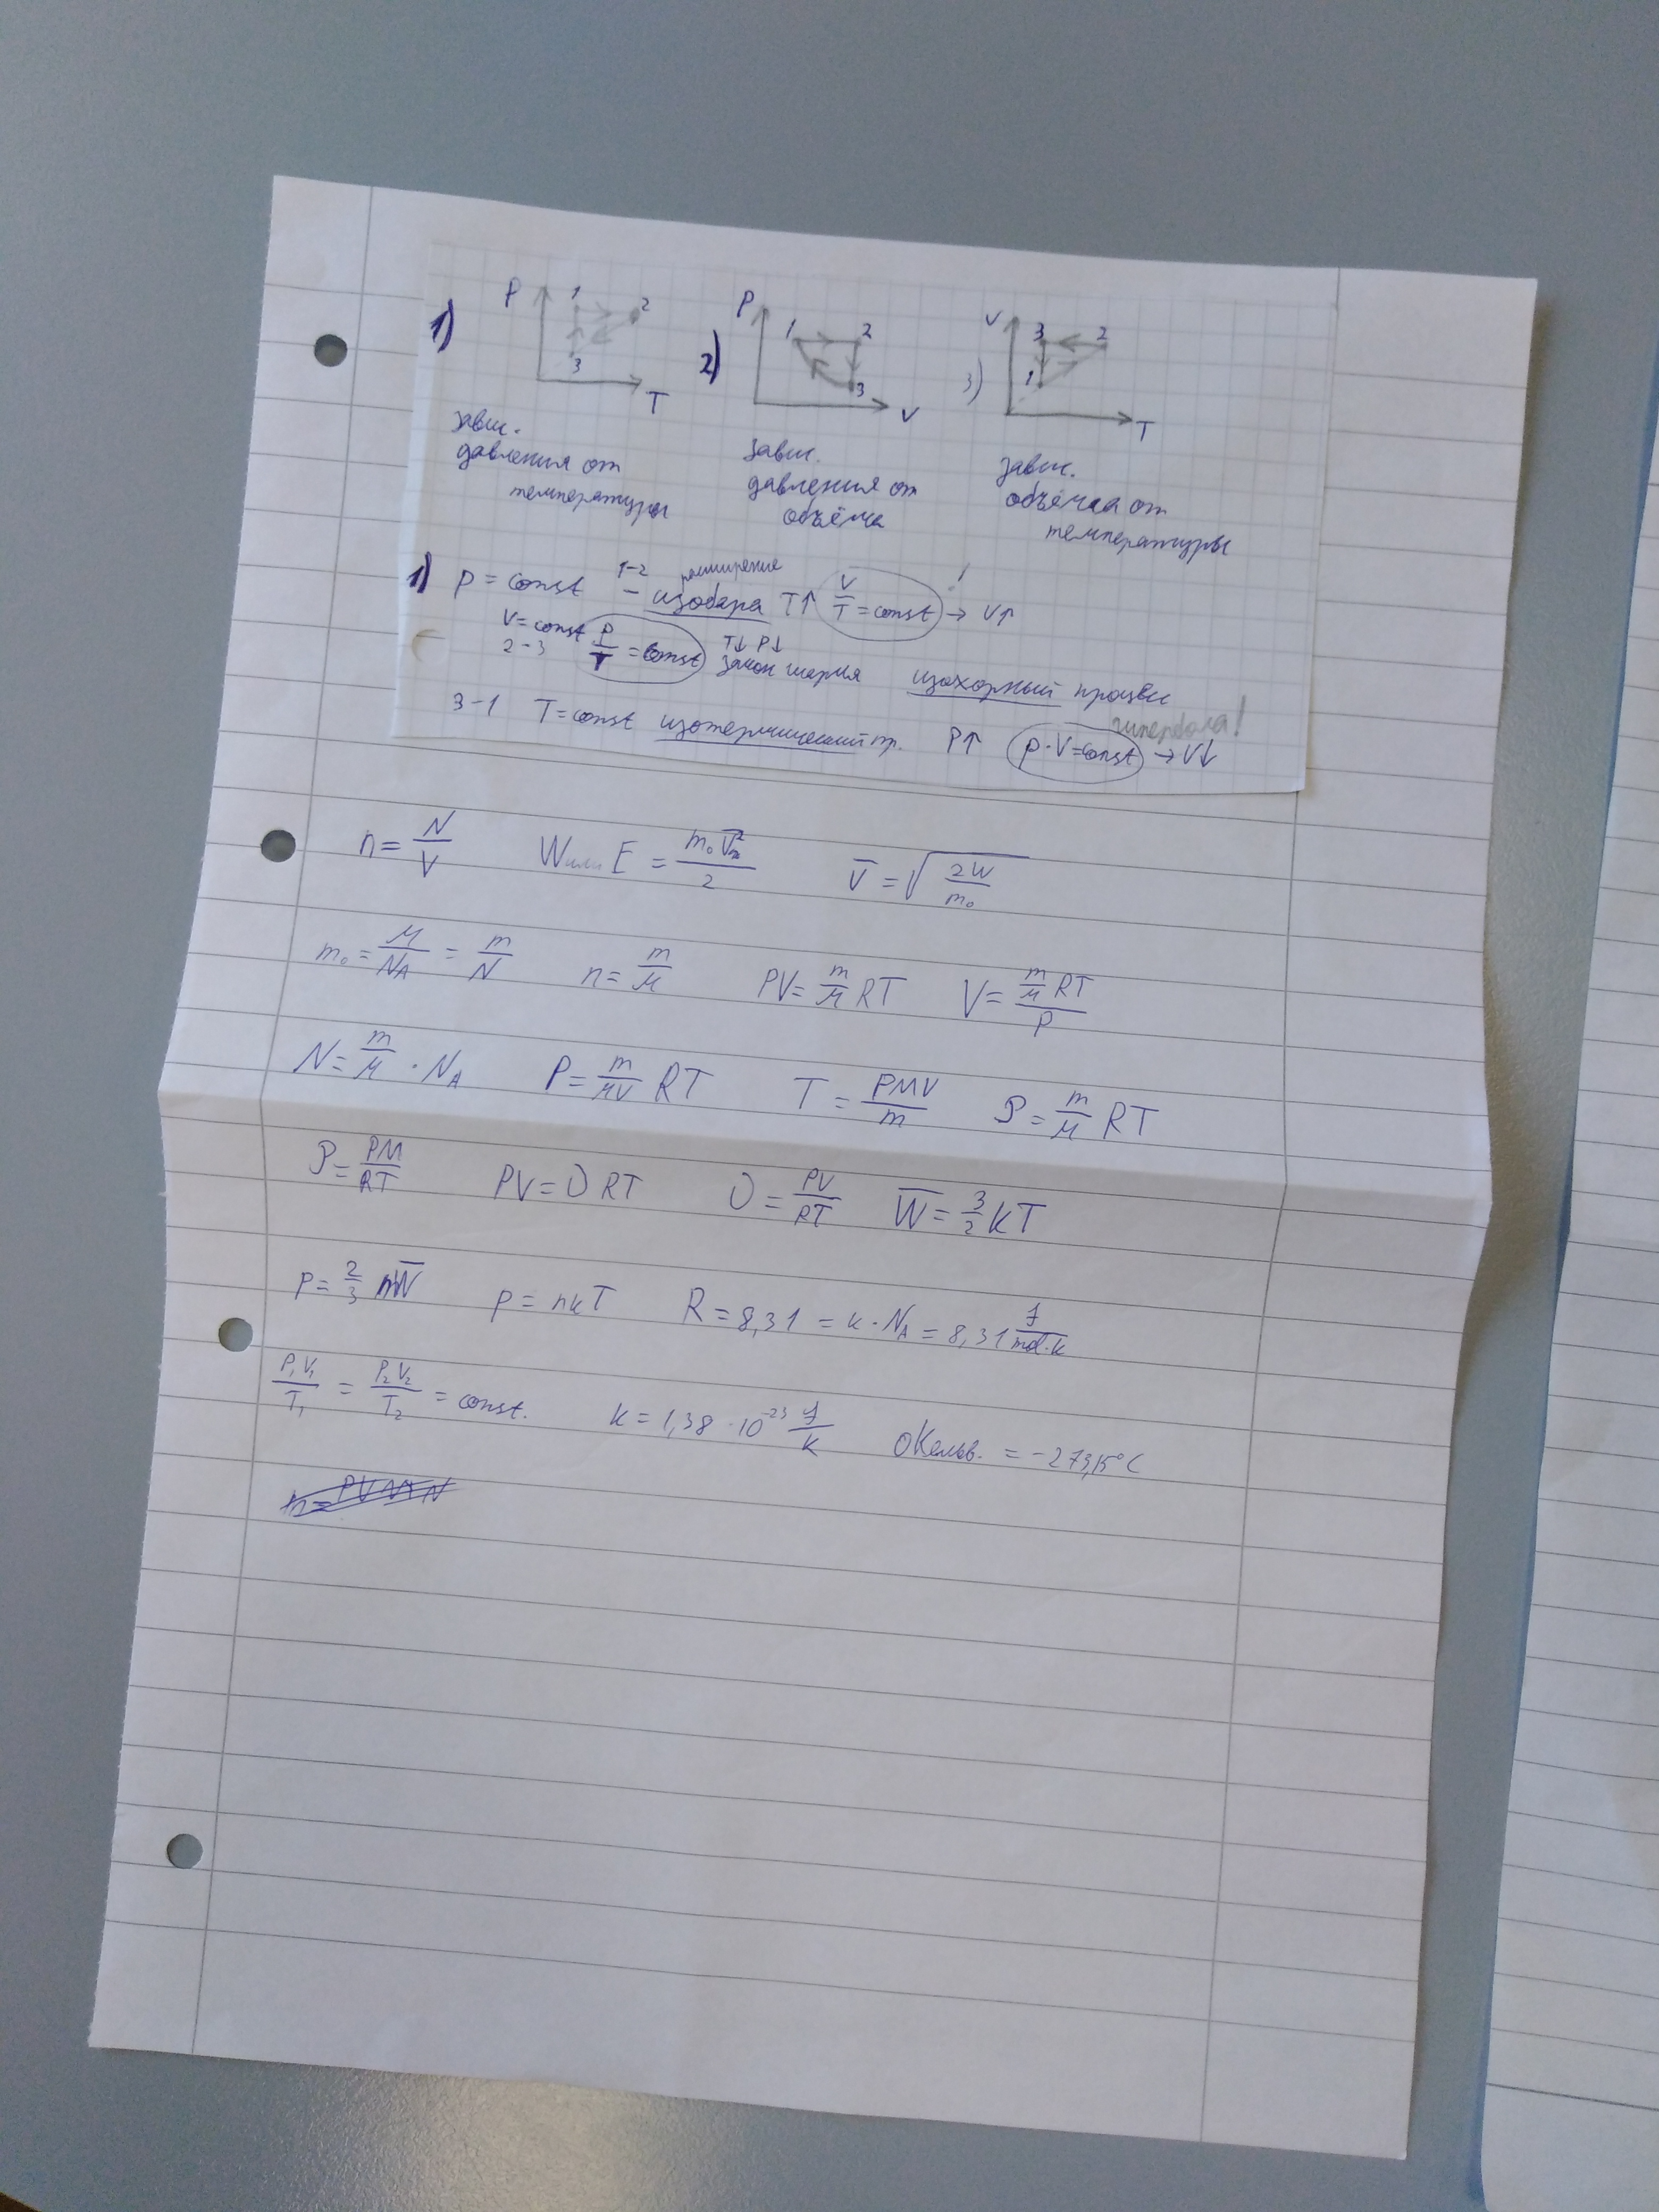 1) P 1 2 3 T
2) P 1 2 3 V
3) V 3 2 1 T
завис. давления от температуры
завис. давления от объёма
завис. объёма от температуры
1) p = const 1-2 расширение - изобара T↑ V/T = const ! → V↑
V = const 2-3 P/T = const T↓ P↓ закон шарля изохорный процесс
3-1 T = const изотермический пр. P↑ p·V = const гипербола! → V↓
n = N/V W или E = m₀v̄²/2 v̄ = √(2W/m₀)
m₀ = M/N_A = m/N n = m/M PV = m/M RT V = (m/M RT)/P
N = m/M · N_A P = m/MV RT T = PMV/m P = m/M RT
P = PM/RT PV = υ RT υ = PV/RT W̄ = 3/2 kT
p = 2/3 nW̄ p = nkT R = 8,31 = k · N_A = 8,31 J/mol·k
P₁V₁/T₁ = P₂V₂/T₂ = const. k = 1,38 · 10⁻²³ J/k 0 Кельв. = -273,15°C